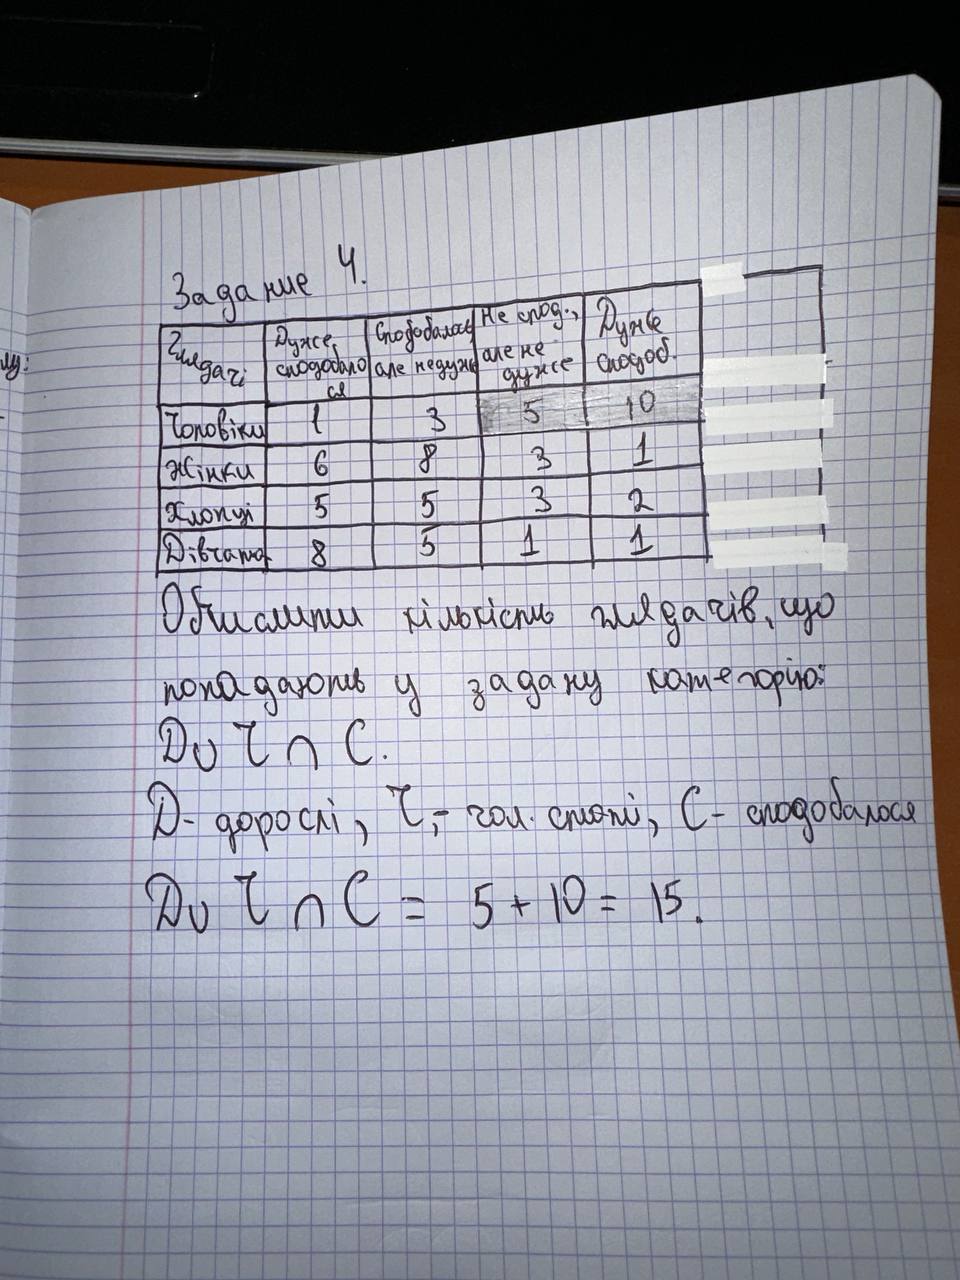 лу:
Задание 4.
Глядачі Дуже сподобалося Сподобалось але не дуже Не спод., але не дуже Дуже сподоб.
Чоловіки 1 3 5 10
Жінки 6 8 3 1
Хлопці 5 5 3 2
Дівчата 8 5 1 1
Обчислити кількість глядачів, що
попадають у задану категорію:
D∪ Ꞇ ∩ C.
D- дорослі, Ꞇ,- чол. статі, C- сподобалося
D∪ Ꞇ ∩ C = 5 + 10 = 15.